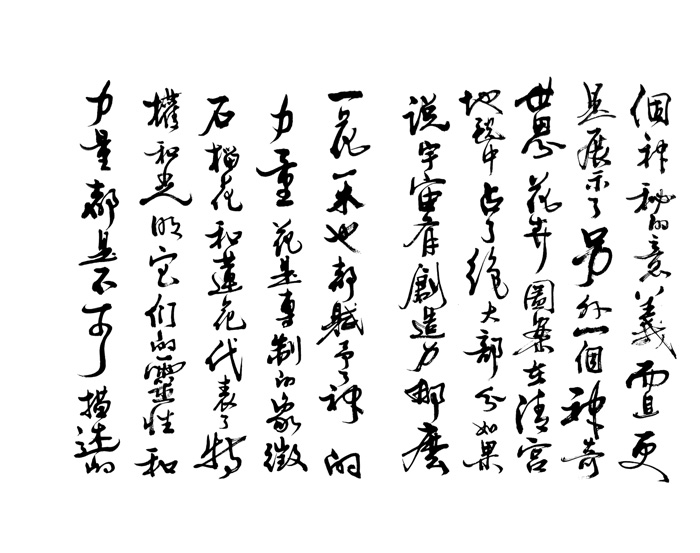 個神秘的意義而且更
是展示了另外一個神奇
世界花卉圖案在清宮
地毯中占了絕大部分如果
説宇宙有創造力那麼
一花一木也都賦予了神的
力量花是專制的象徵
石榴花和蓮花代表了特
權和光明它们的靈性和
力量都是不可描述的